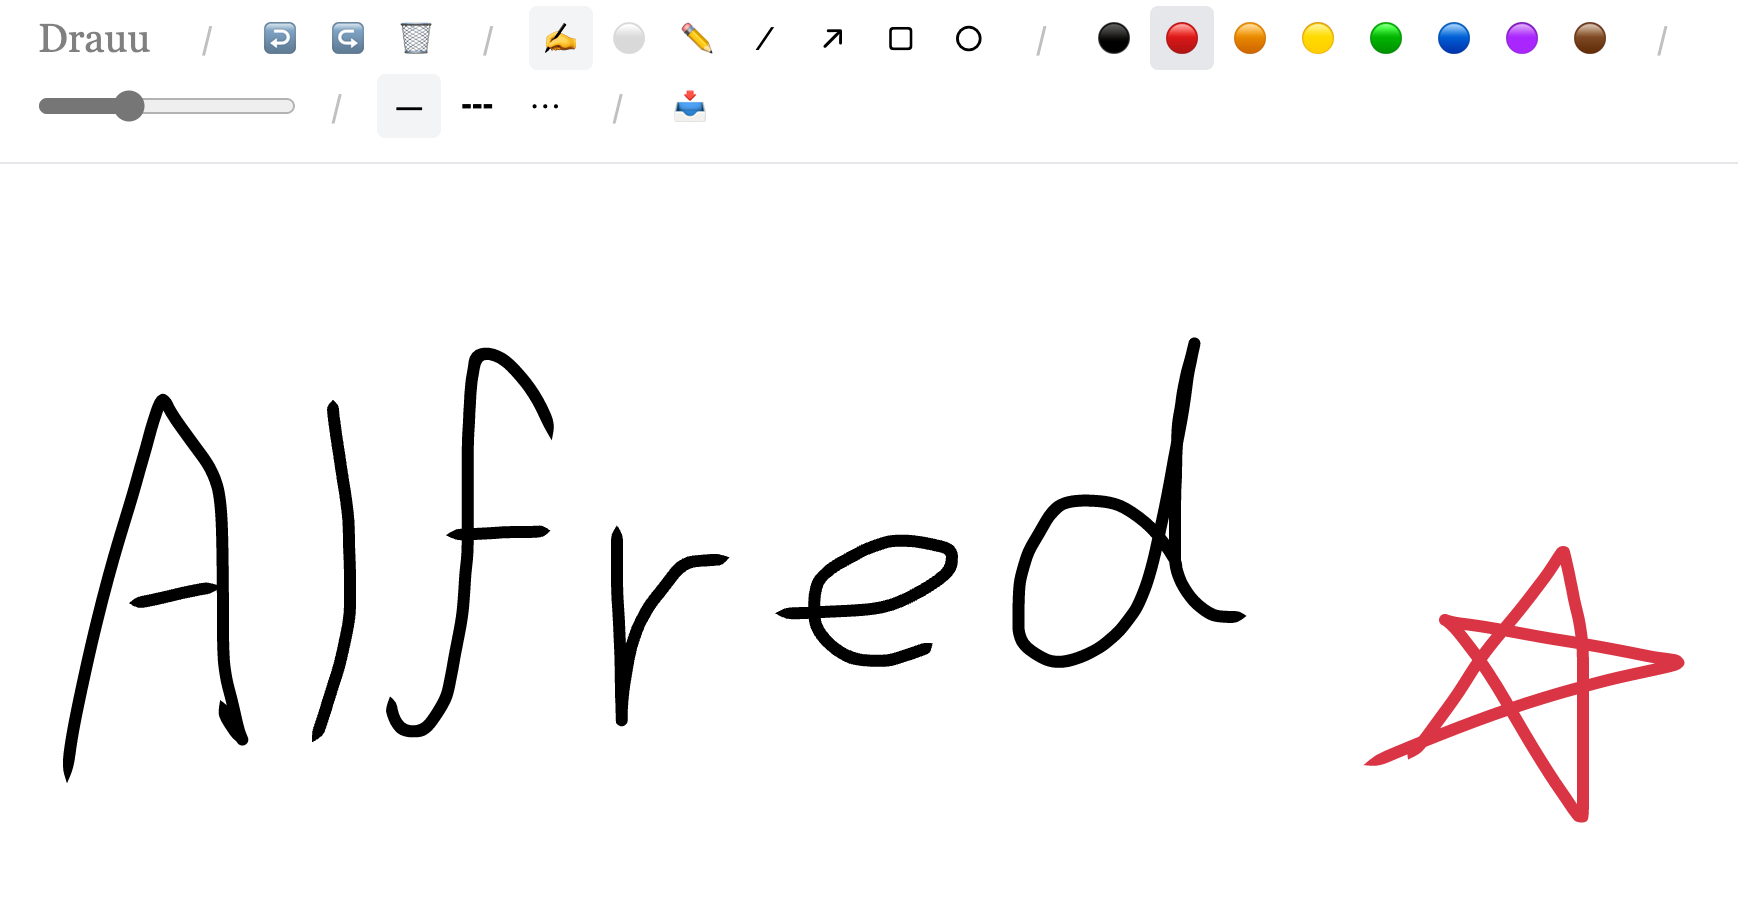 Drauu
Alfred